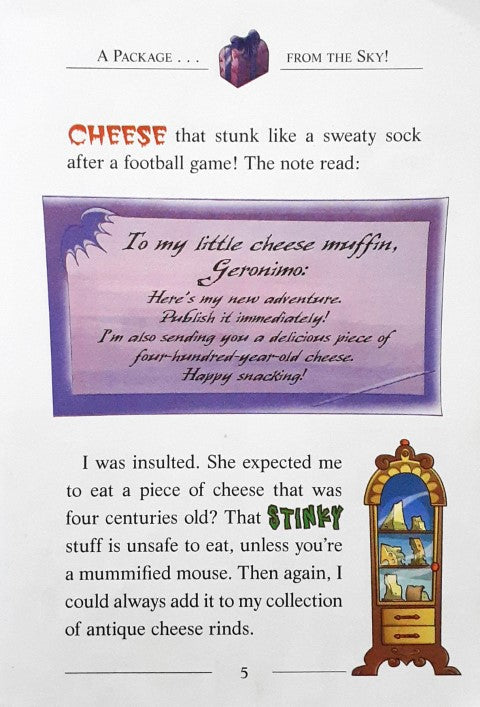 A Package . . . from the Sky!
CHEESE that stunk like a sweaty sock
after a football game! The note read:
To my little cheese muffin,
Geronimo:
Here's my new adventure.
Publish it immediately!
I'm also sending you a delicious piece of
four-hundred-year-old cheese.
Happy snacking!
I was insulted. She expected me
to eat a piece of cheese that was
four centuries old? That STINKY
stuff is unsafe to eat, unless you're
a mummified mouse. Then again, I
could always add it to my collection
of antique cheese rinds.
5